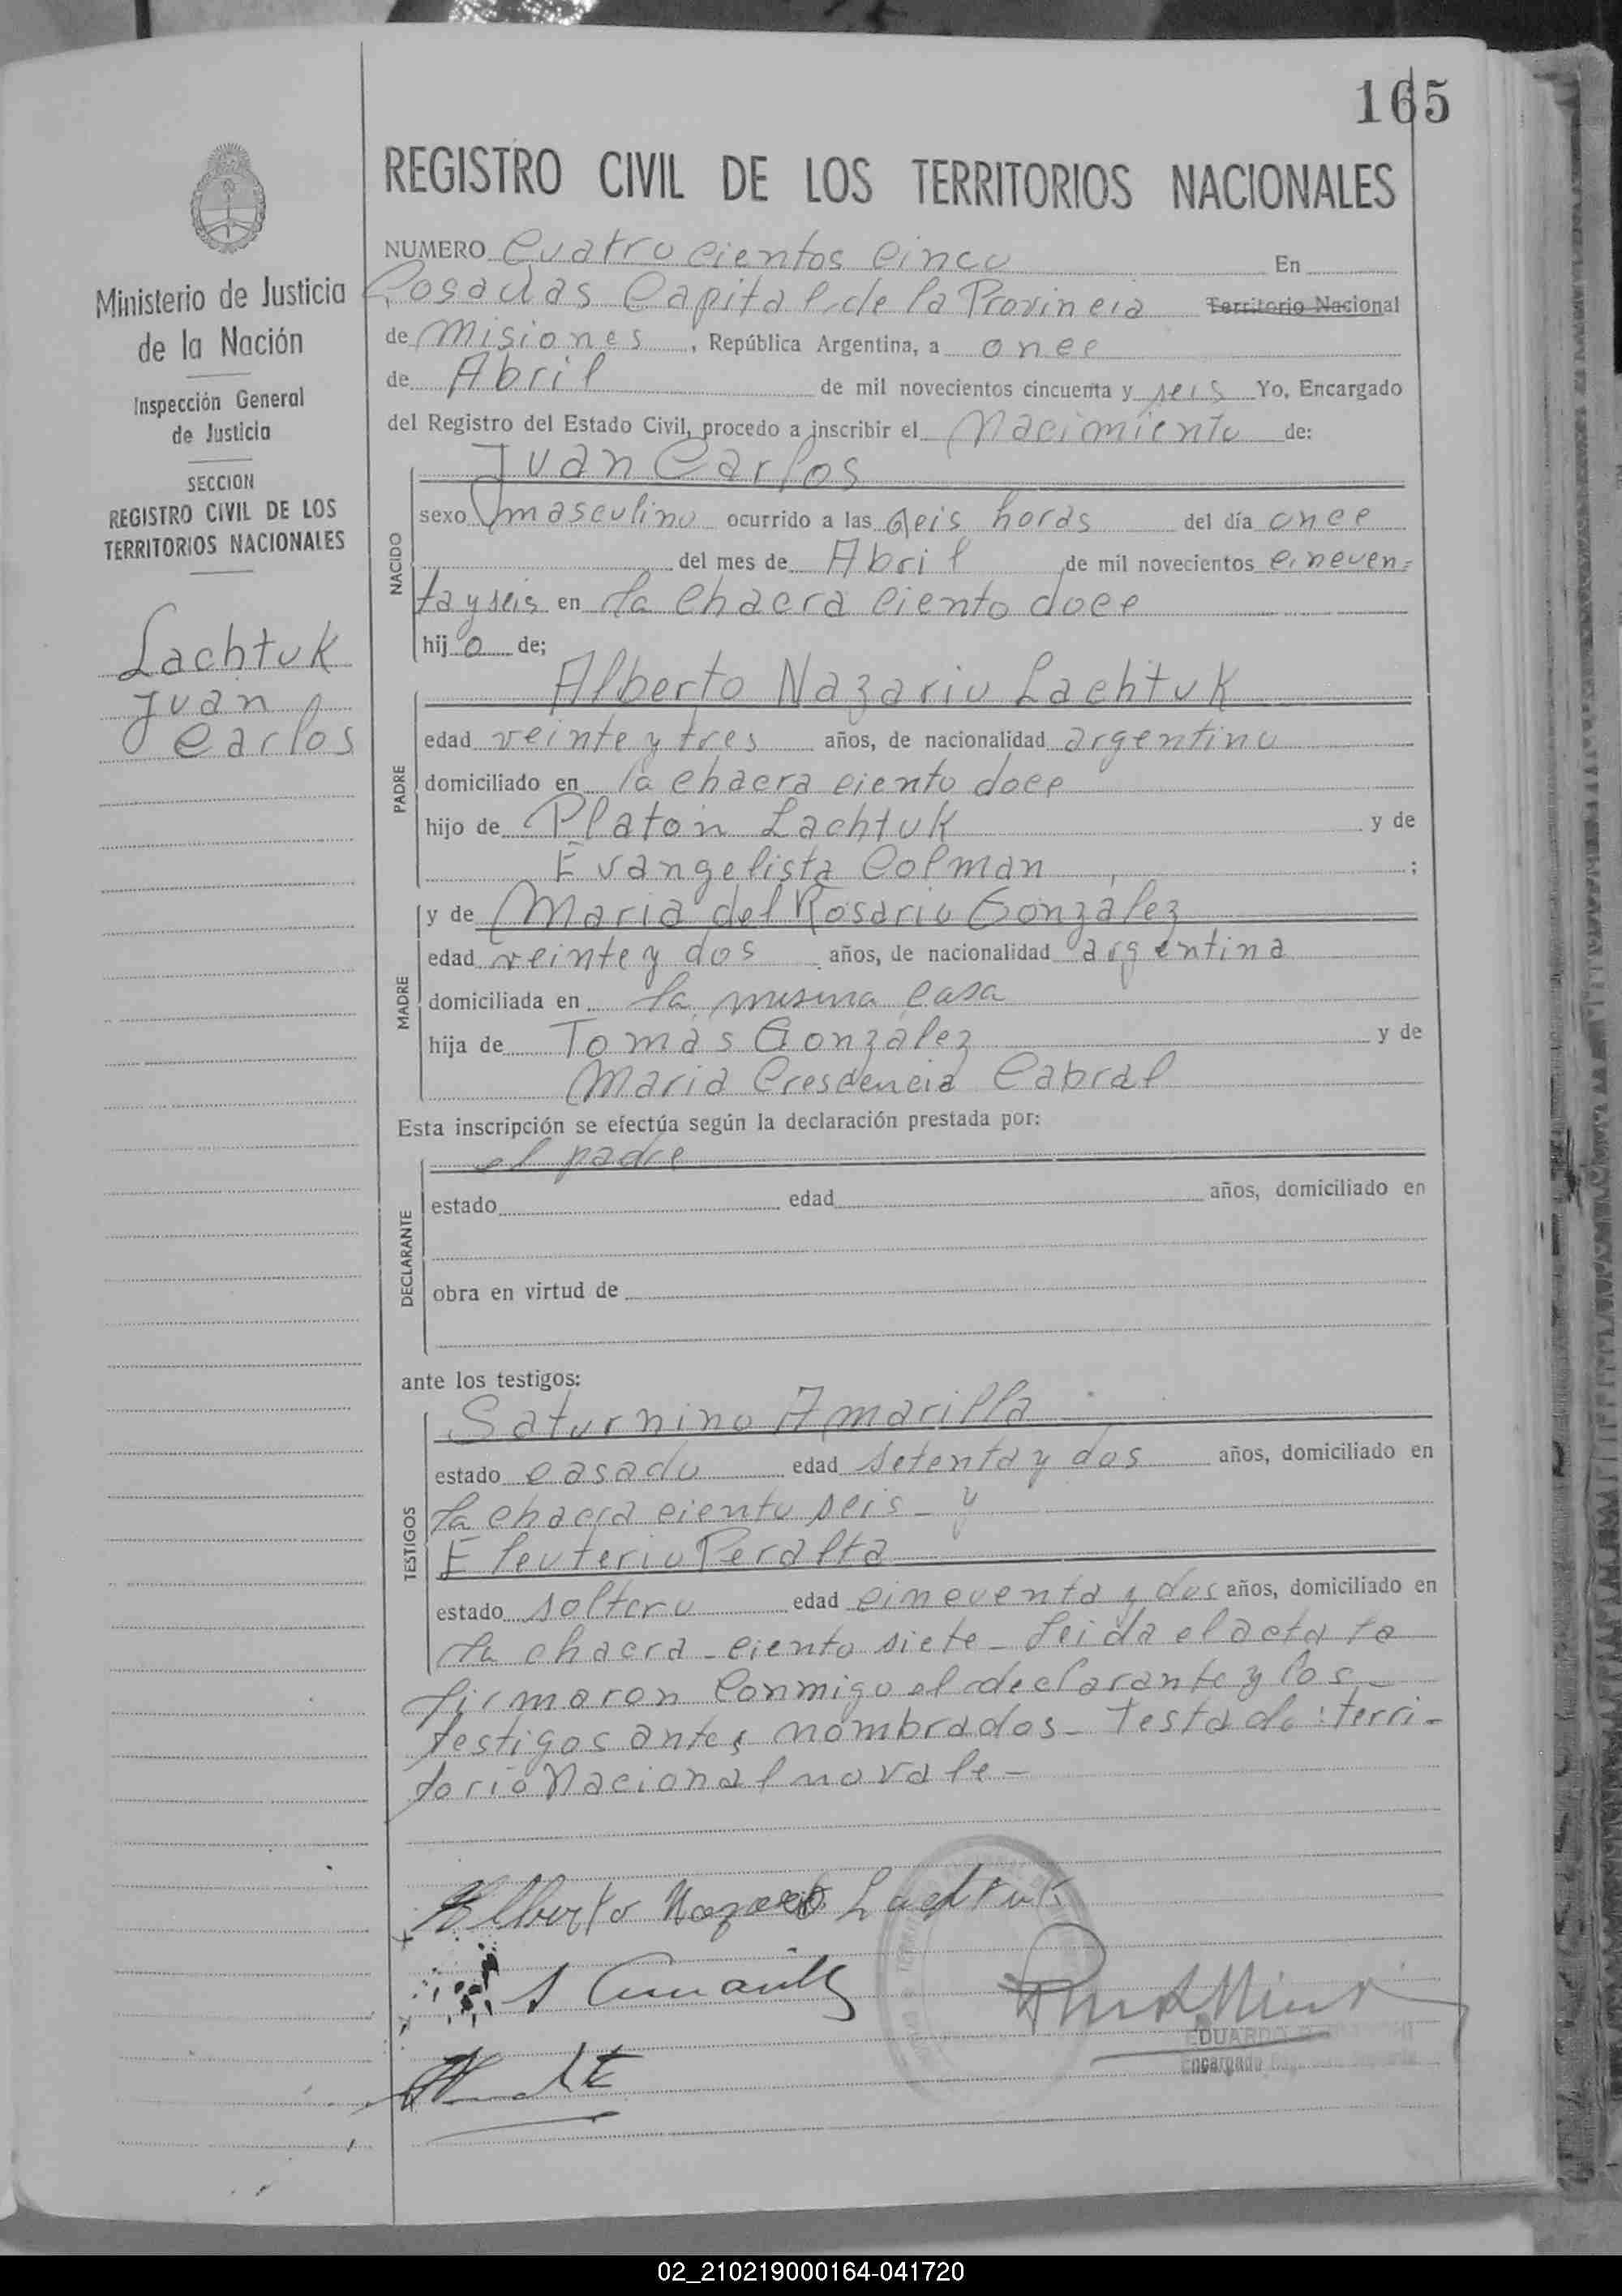 165
REGISTRO CIVIL DE LOS TERRITORIOS NACIONALES
Ministerio de Justicia
de la Nación
Inspección General
de Justicia
SECCION
REGISTRO CIVIL DE LOS
TERRITORIOS NACIONALES
Lachtuk
Juan
Carlos
NUMERO Cuatrocientos cinco En
Posadas Capital de la Provincia Territorio Nacional
de Misiones, República Argentina, a once
de Abril de mil novecientos cincuenta y seis Yo, Encargado
del Registro del Estado Civil, procedo a inscribir el Nacimiento de:
NACIDO
Juan Carlos
sexo masculino ocurrido a las seis horas del día once
del mes de Abril de mil novecientos cincuen=
ta y seis en la chacra ciento doce
hijo de;
PADRE
Alberto Nazario Lachtuk
edad veinte y tres años, de nacionalidad argentino
domiciliado en la chacra ciento doce
hijo de Platon Lachtuk y de
Evangelista Colman ;
MADRE
y de Maria del Rosario González
edad veinte y dos años, de nacionalidad argentina
domiciliada en la misma casa
hija de Tomás González y de
Maria Cresdencia Cabral
Esta inscripción se efectúa según la declaración prestada por:
DECLARANTE
el padre
estado edad años, domiciliado en
obra en virtud de
ante los testigos:
TESTIGOS
Saturnino Amarilla
estado casado edad setenta y dos años, domiciliado en
la chacra ciento seis - y
Eleuterio Peralta
estado soltero edad cincuenta y dos años, domiciliado en
la chacra - ciento siete - Leida el acta la
firmaron conmigo el declarante y los
testigos antes nombrados - Testado: terri-
torio Nacional no vale -
Alberto Nazario Lachtuk
S Amarilla
EDUARDO
Encargado
02_210219000164-041720